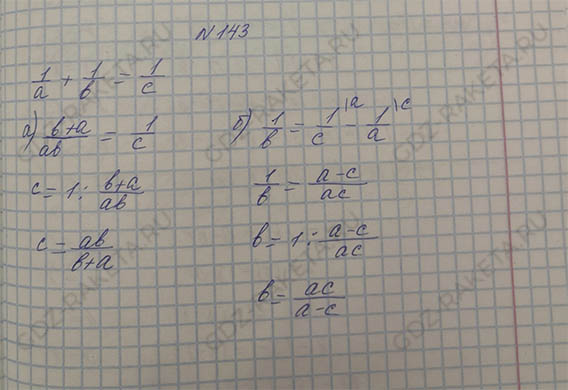 N 143
1/a + 1/b = 1/c
а) b+a/ab = 1/c
c = 1 : b+a/ab
c = ab/b+a
б) 1/b = 1/c |a - 1/a |c
1/b = a-c/ac
b = 1 : a-c/ac
b = ac/a-c
GDZ-RAKETA.RU